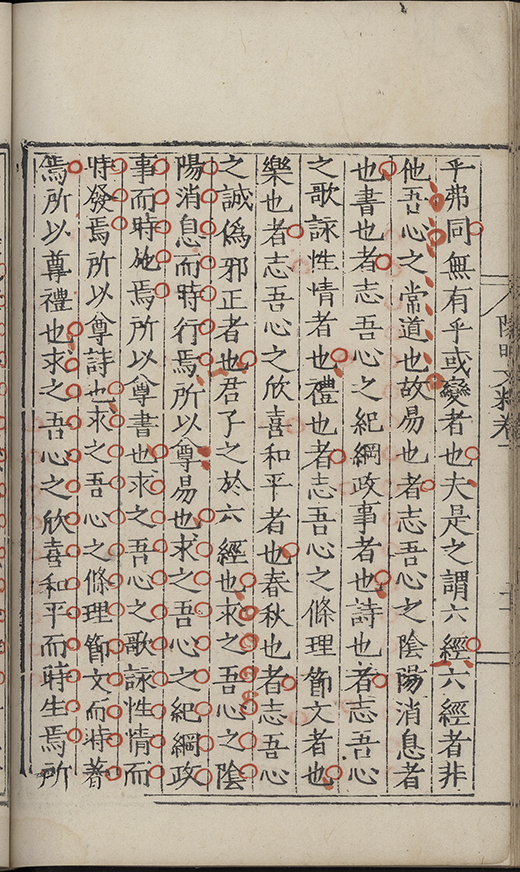 乎弗同無有乎或變者也夫是之謂六經六經者非
他吾心之常道也故易也者志吾心之陰陽消息者
也書也者志吾心之紀綱政事者也詩也者志吾心
之歌詠性情者也禮也者志吾心之條理節文者也
樂也者志吾心之欣喜和平者也春秋也者志吾心
之誠僞邪正者也君子之於六經也求之吾心之陰
陽消息而時行焉所以尊易也求之吾心之紀綱政
事而時施焉所以尊書也求之吾心之歌詠性情而
時發焉所以尊詩也求之吾心之條理節文而時著
焉所以尊禮也求之吾心之欣喜和平而時生焉所
陽明文粹卷一